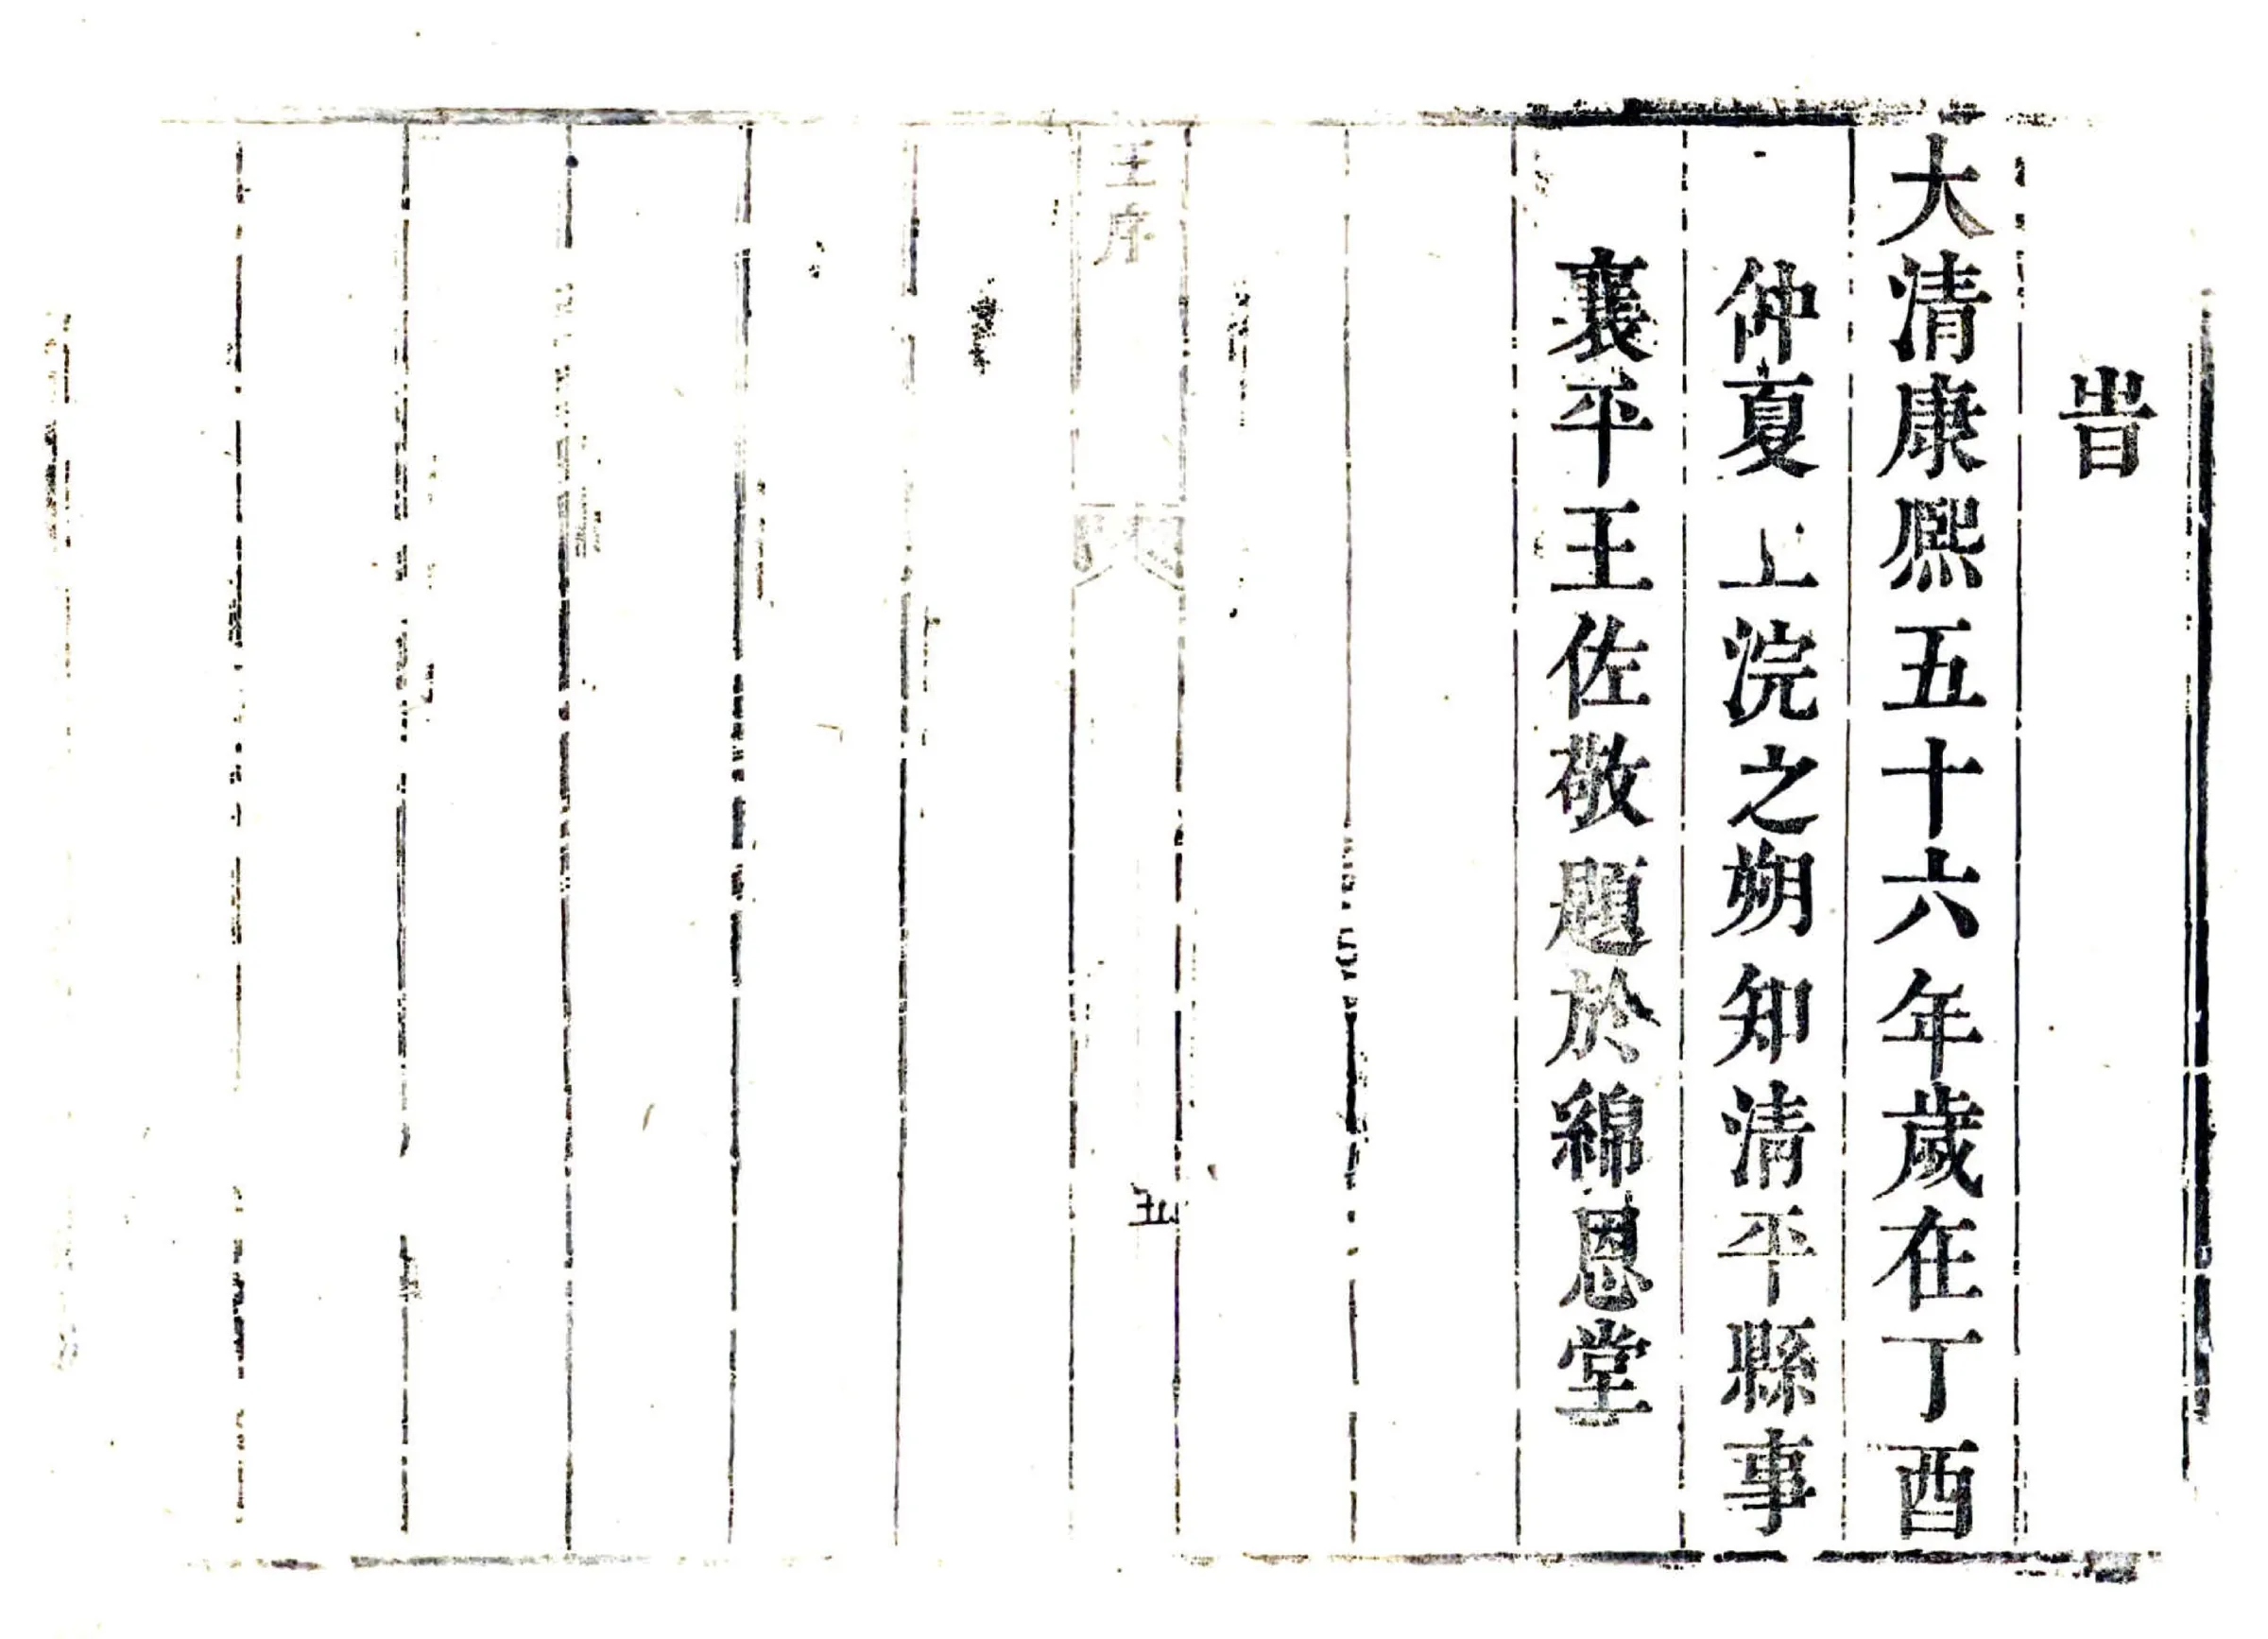 旹
大清康熙五十六年歲在丁酉
仲夏上浣之朔知清平縣事
襄平王佐敬題於綿恩堂
王序
五